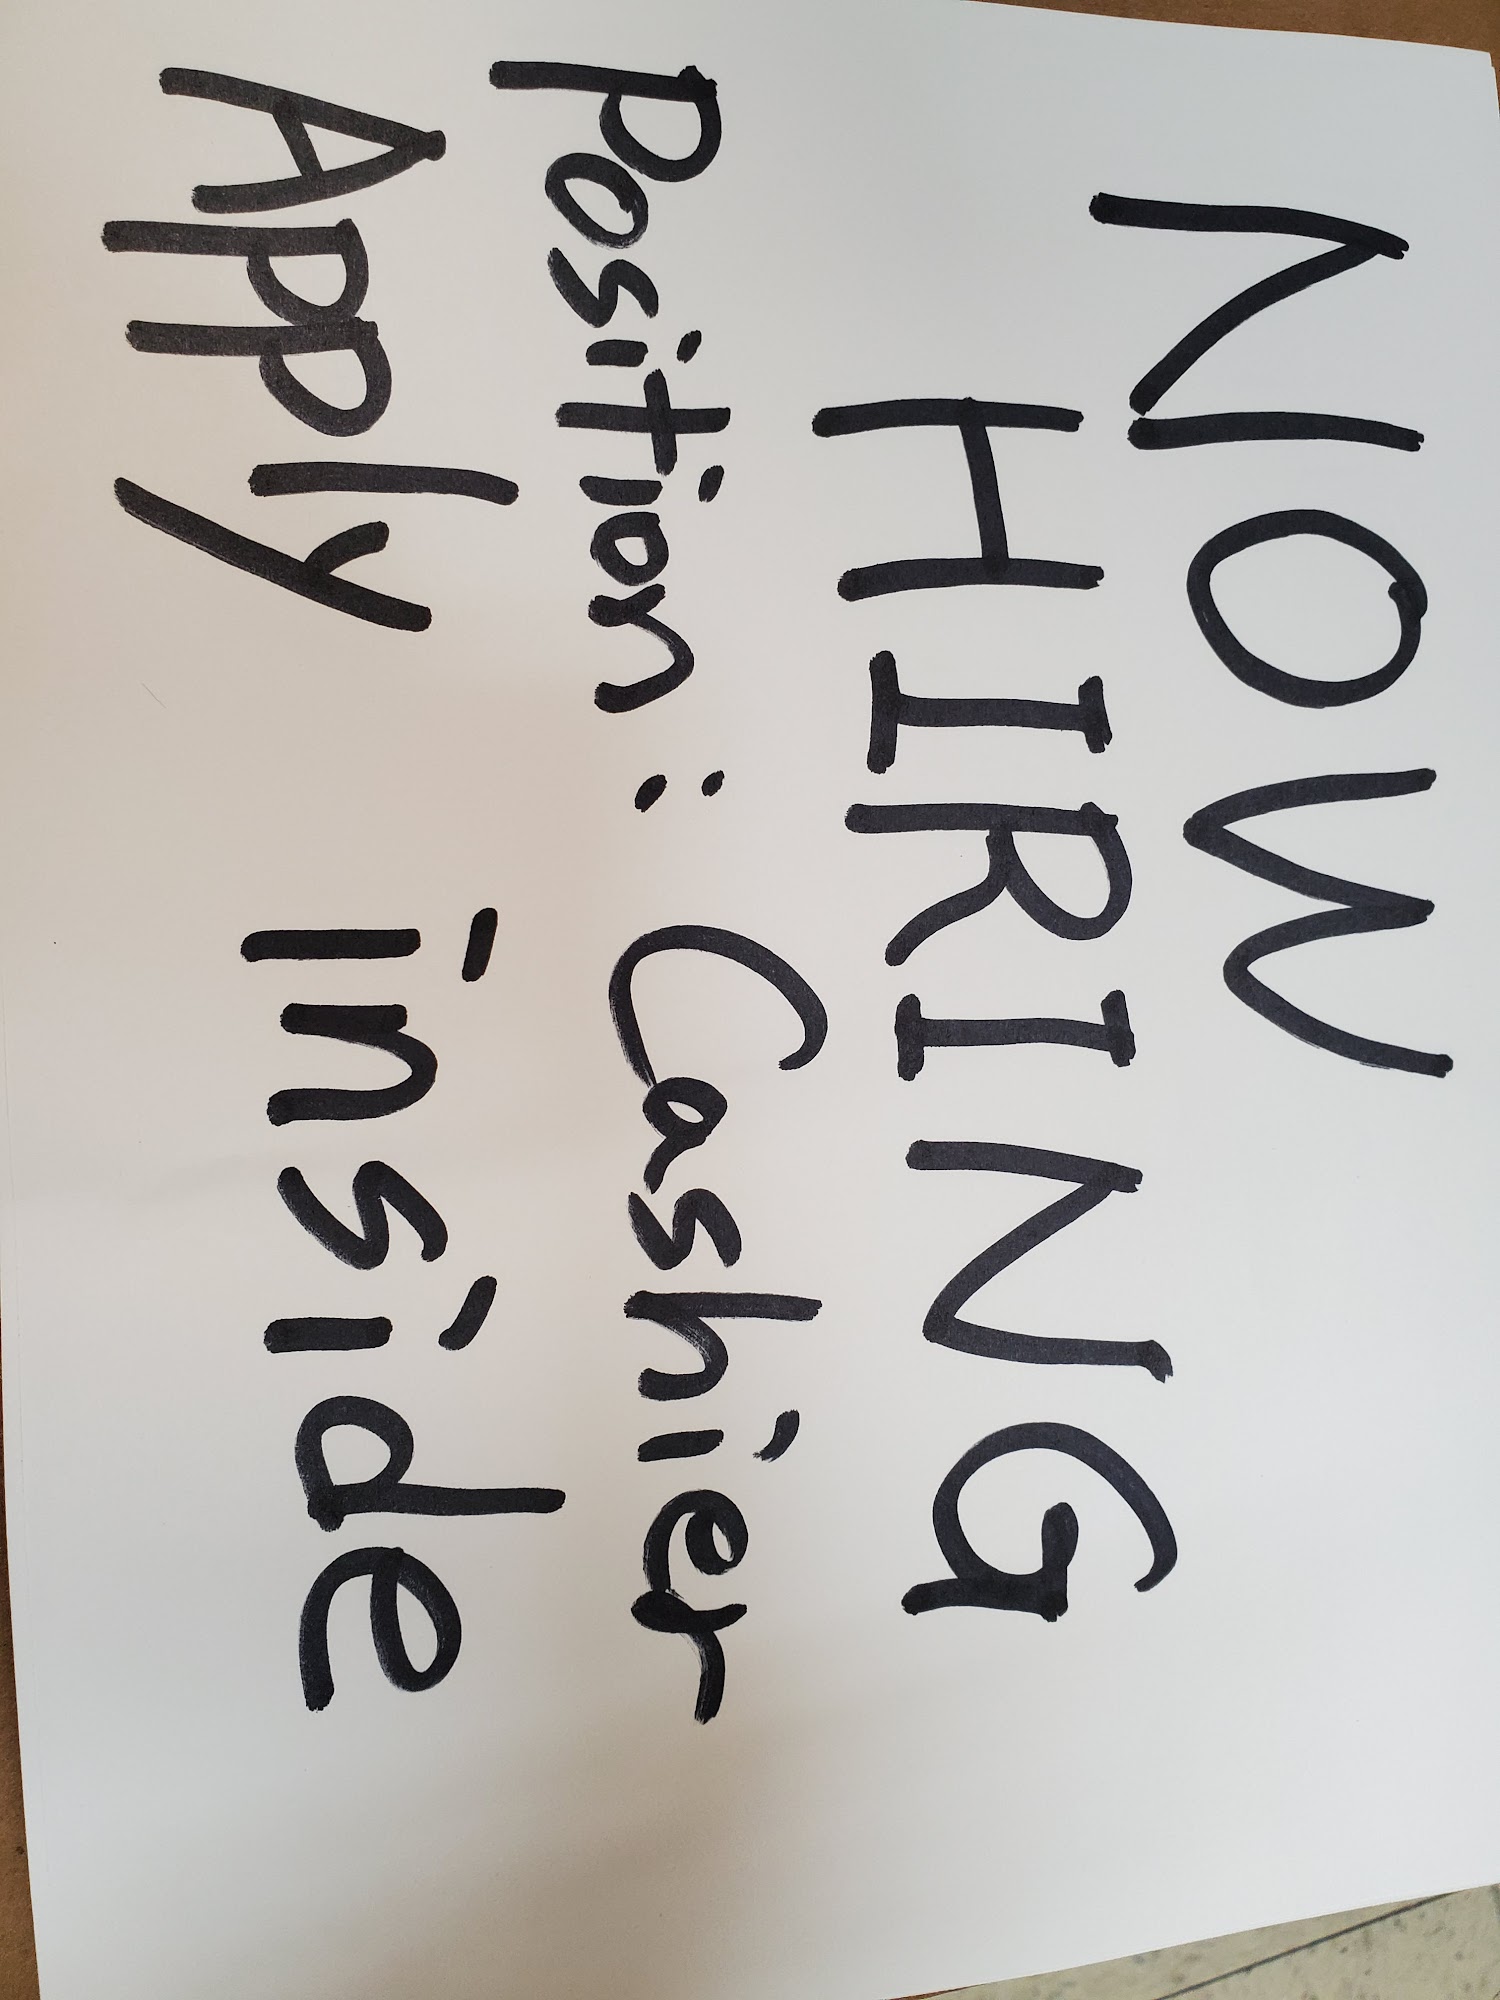 NOW
HIRING
Position: Cashier
Apply inside